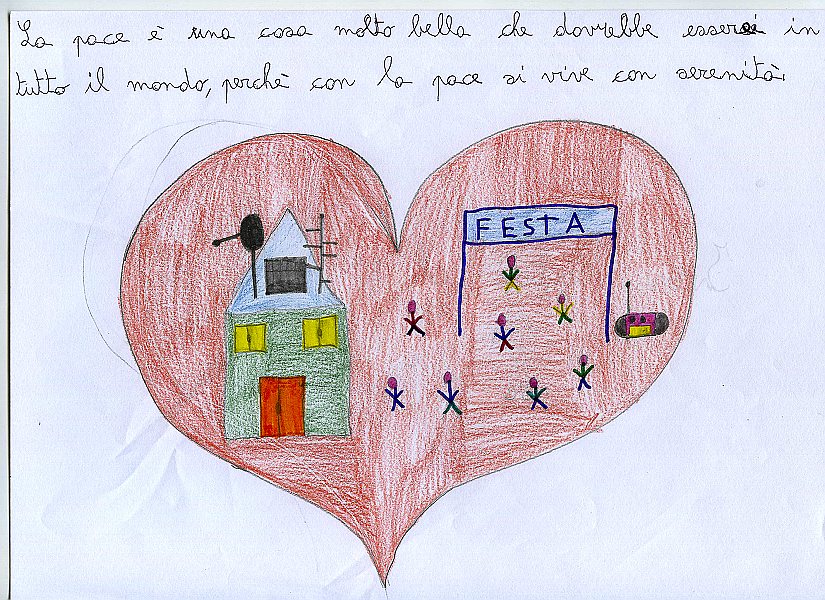 La pace è una cosa molto bella che dovrebbe esserci in
tutto il mondo, perchè con la pace si vive con serenità.
FESTA